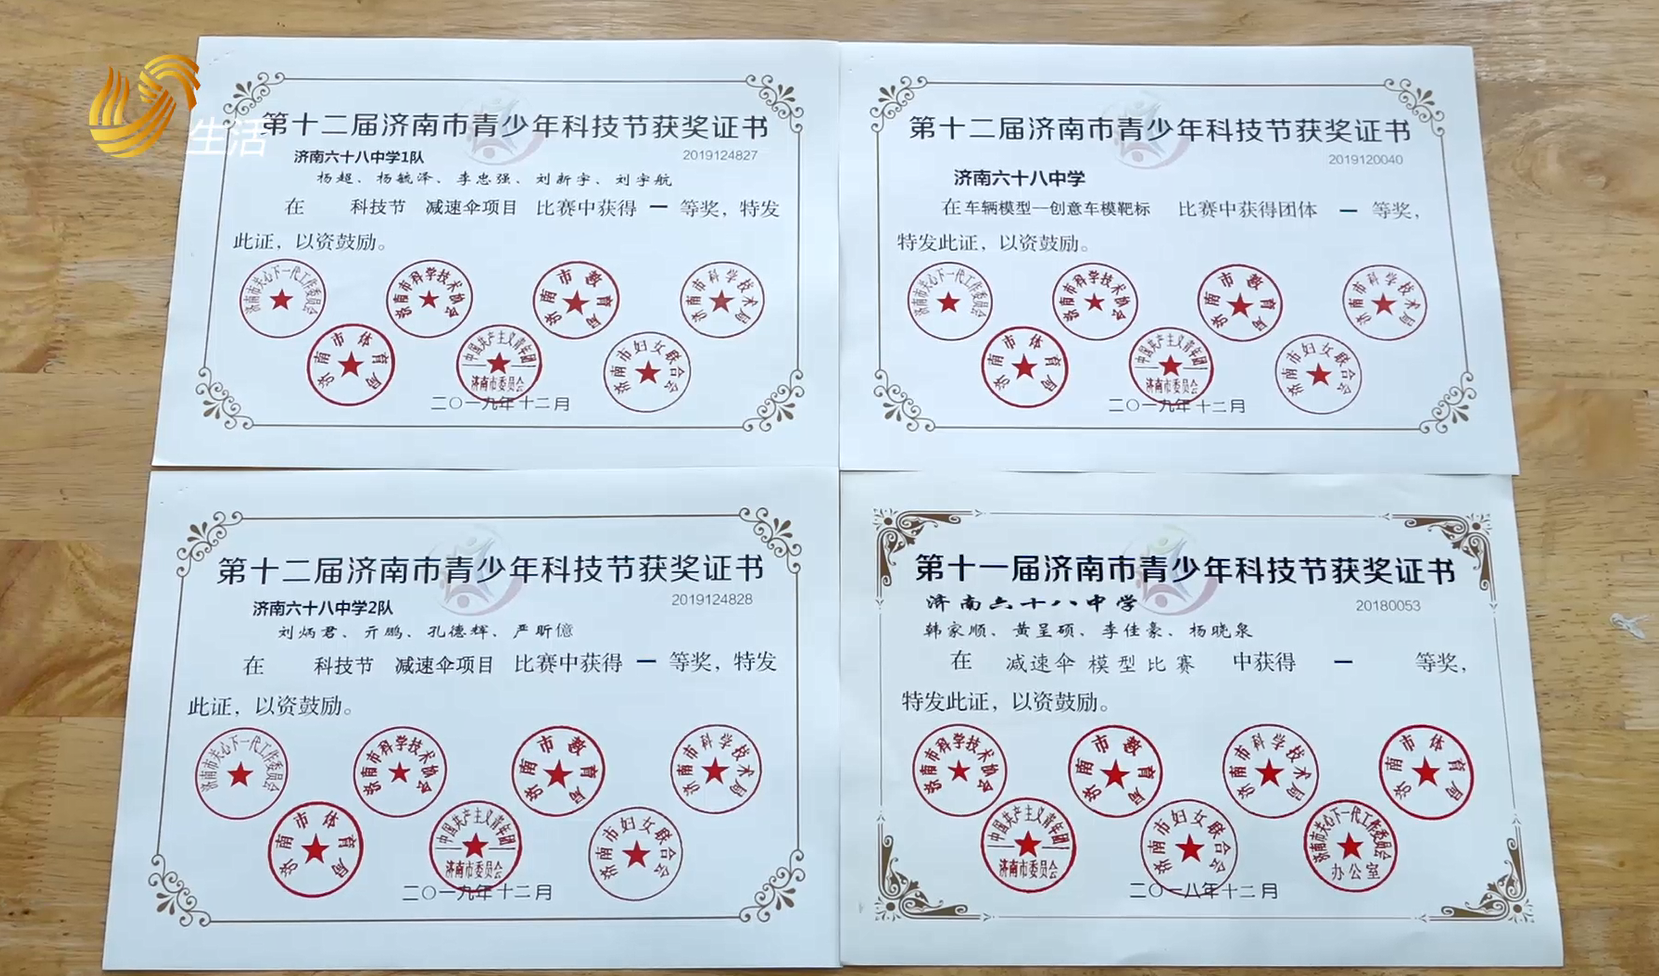 生活
第十二届济南市青少年科技节获奖证书
济南六十八中学1队
2019124827
杨超、杨毓泽、李忠强、刘新宇、刘宇航
在 科技节 减速伞项目 比赛中获得 一 等奖，特发
此证，以资鼓励。
济南市关心下一代工作委员会
济南市科学技术协会
济南市教育局
济南市科学技术局
济南市体育局
中国共产主义青年团
济南市委员会
济南市妇女联合会
二〇一九年十二月
第十二届济南市青少年科技节获奖证书
2019120040
济南六十八中学
在车辆模型—创意车模靶标 比赛中获得团体 一 等奖，
特发此证，以资鼓励。
济南市关心下一代工作委员会
济南市科学技术协会
济南市教育局
济南市科学技术局
济南市体育局
中国共产主义青年团
济南市委员会
济南市妇女联合会
二〇一九年十二月
第十二届济南市青少年科技节获奖证书
济南六十八中学2队
2019124828
刘炳君、亓鹏、孔德辉、严昕億
在 科技节 减速伞项目 比赛中获得 一 等奖，特发
此证，以资鼓励。
济南市关心下一代工作委员会
济南市科学技术协会
济南市教育局
济南市科学技术局
济南市体育局
中国共产主义青年团
济南市委员会
济南市妇女联合会
二〇一九年十二月
第十一届济南市青少年科技节获奖证书
济南六十八中学
20180053
韩家顺、黄呈硕、李佳豪、杨晓泉
在 减速伞模型比赛 中获得 一 等奖，
特发此证，以资鼓励。
济南市科学技术协会
济南市教育局
济南市科学技术局
济南市体育局
中国共产主义青年团
济南市委员会
济南市妇女联合会
济南市关心下一代工作委员会
办公室
二〇一八年十二月